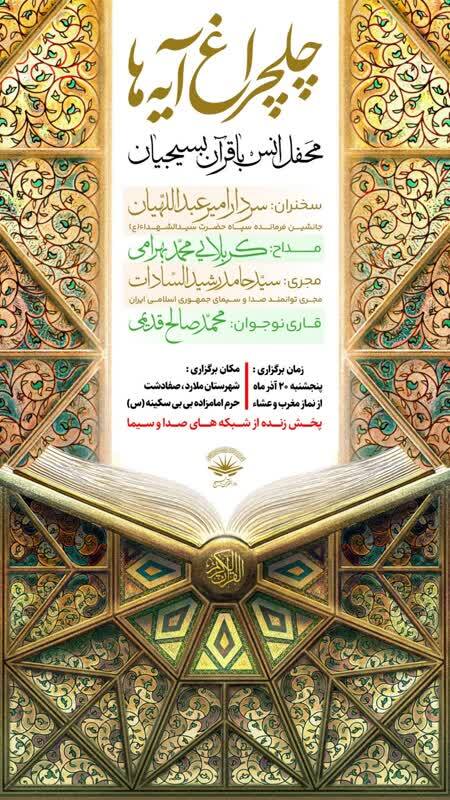 چلچراغ آیه ها
محفل انس با قرآن بسیجیان
سخنران: سردار امیر عبداللهیان
جانشین فرمانده سپاه حضرت سیدالشهداء(ع)
مداح: کربلایی محمد بهرامی
مجری: سید حامد رشید السادات
مجری توانمند صدا و سیمای جمهوری اسلامی ایران
قاری نوجوان: محمد صالح قدیمی
زمان برگزاری :
پنجشنبه ۲۰ آذر ماه
از نماز مغرب و عشاء
مکان برگزاری :
شهرستان ملارد ، صفادشت
حرم امامزاده بی بی سکینه (س)
پخش زنده از شبکه های صدا و سیما
القرآن الکریم